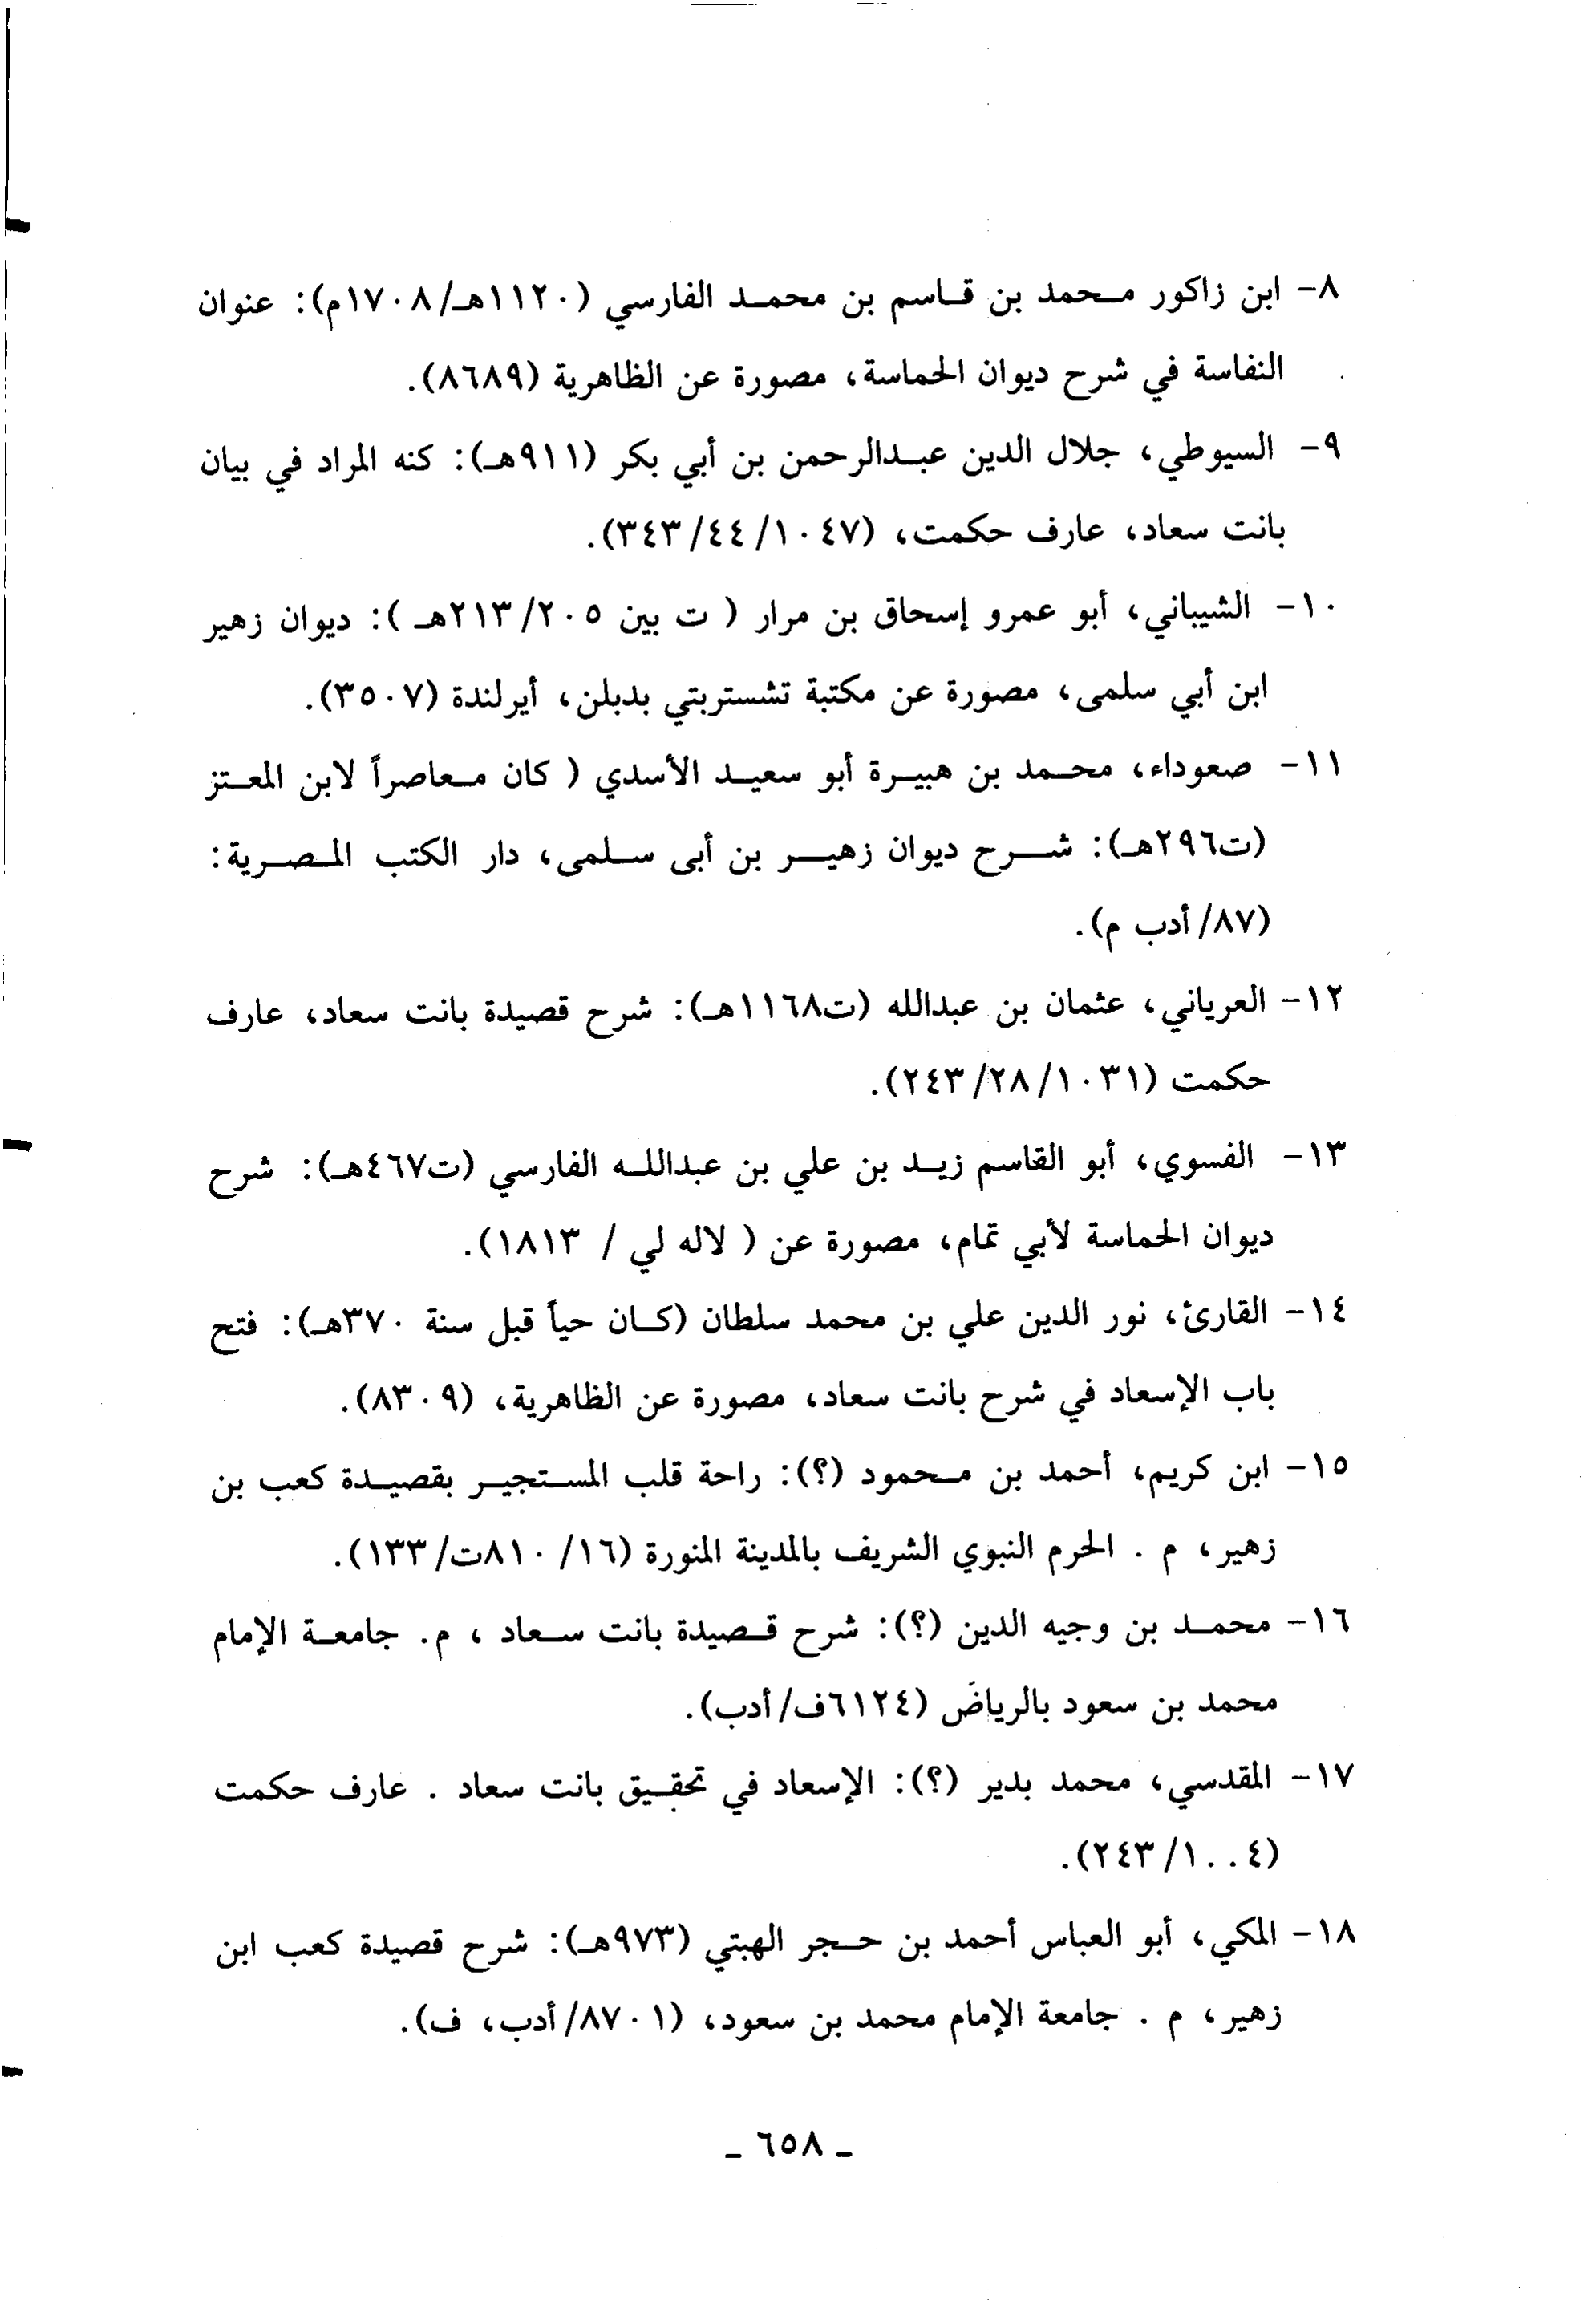 ٨- ابن زاكور محمد بن قاسم بن محمد الفارسي (١١٢٠هـ/١٧٠٨م): عنوان
النفاسة في شرح ديوان الحماسة، مصورة عن الظاهرية (٨٦٨٩).
٩- السيوطي، جلال الدين عبدالرحمن بن أبي بكر (٩١١هـ): كنه المراد في بيان
بانت سعاد، عارف حكمت، (٣٤٣/٤٤/١٠٤٧).
١٠- الشيباني، أبو عمرو إسحاق بن مرار ( ت بين ٢١٣/٢٠٥هـ ): ديوان زهير
ابن أبي سلمى، مصورة عن مكتبة تشستربتي بدبلن، أيرلندة (٣٥٠٧).
١١- صعوداء، محمد بن هبيرة أبو سعيد الأسدي ( كان معاصراً لابن المعتز
(ت٢٩٦هـ): شرح ديوان زهير بن أبى سلمى، دار الكتب المصرية:
(٨٧/أدب م).
١٢- العرياني، عثمان بن عبدالله (ت١١٦٨هـ): شرح قصيدة بانت سعاد، عارف
حكمت (٢٤٣/٢٨/١٠٣١).
١٣- الفسوي، أبو القاسم زيد بن علي بن عبدالله الفارسي (ت٤٦٧هـ): شرح
ديوان الحماسة لأبي تمام، مصورة عن ( لاله لي / ١٨١٣).
١٤- القارئ، نور الدين علي بن محمد سلطان (كان حياً قبل سنة ٣٧٠هـ): فتح
باب الإسعاد في شرح بانت سعاد، مصورة عن الظاهرية، (٨٣٠٩).
١٥- ابن كريم، أحمد بن محمود (؟): راحة قلب المستجير بقصيدة كعب بن
زهير، م . الحرم النبوي الشريف بالمدينة المنورة (١٦/ ٨١٠ت/١٣٣).
١٦- محمد بن وجيه الدين (؟): شرح قصيدة بانت سعاد ، م. جامعة الإمام
محمد بن سعود بالرياض (٦١٢٤ف/أدب).
١٧- المقدسي، محمد بدير (؟): الإسعاد في تحقيق بانت سعاد . عارف حكمت
(٢٤٣/١..٤).
١٨- المكي، أبو العباس أحمد بن حجر الهبتي (٩٧٣هـ): شرح قصيدة كعب ابن
زهير، م . جامعة الإمام محمد بن سعود، (٨٧٠١/أدب، ف).
_ ٦٥٨ _